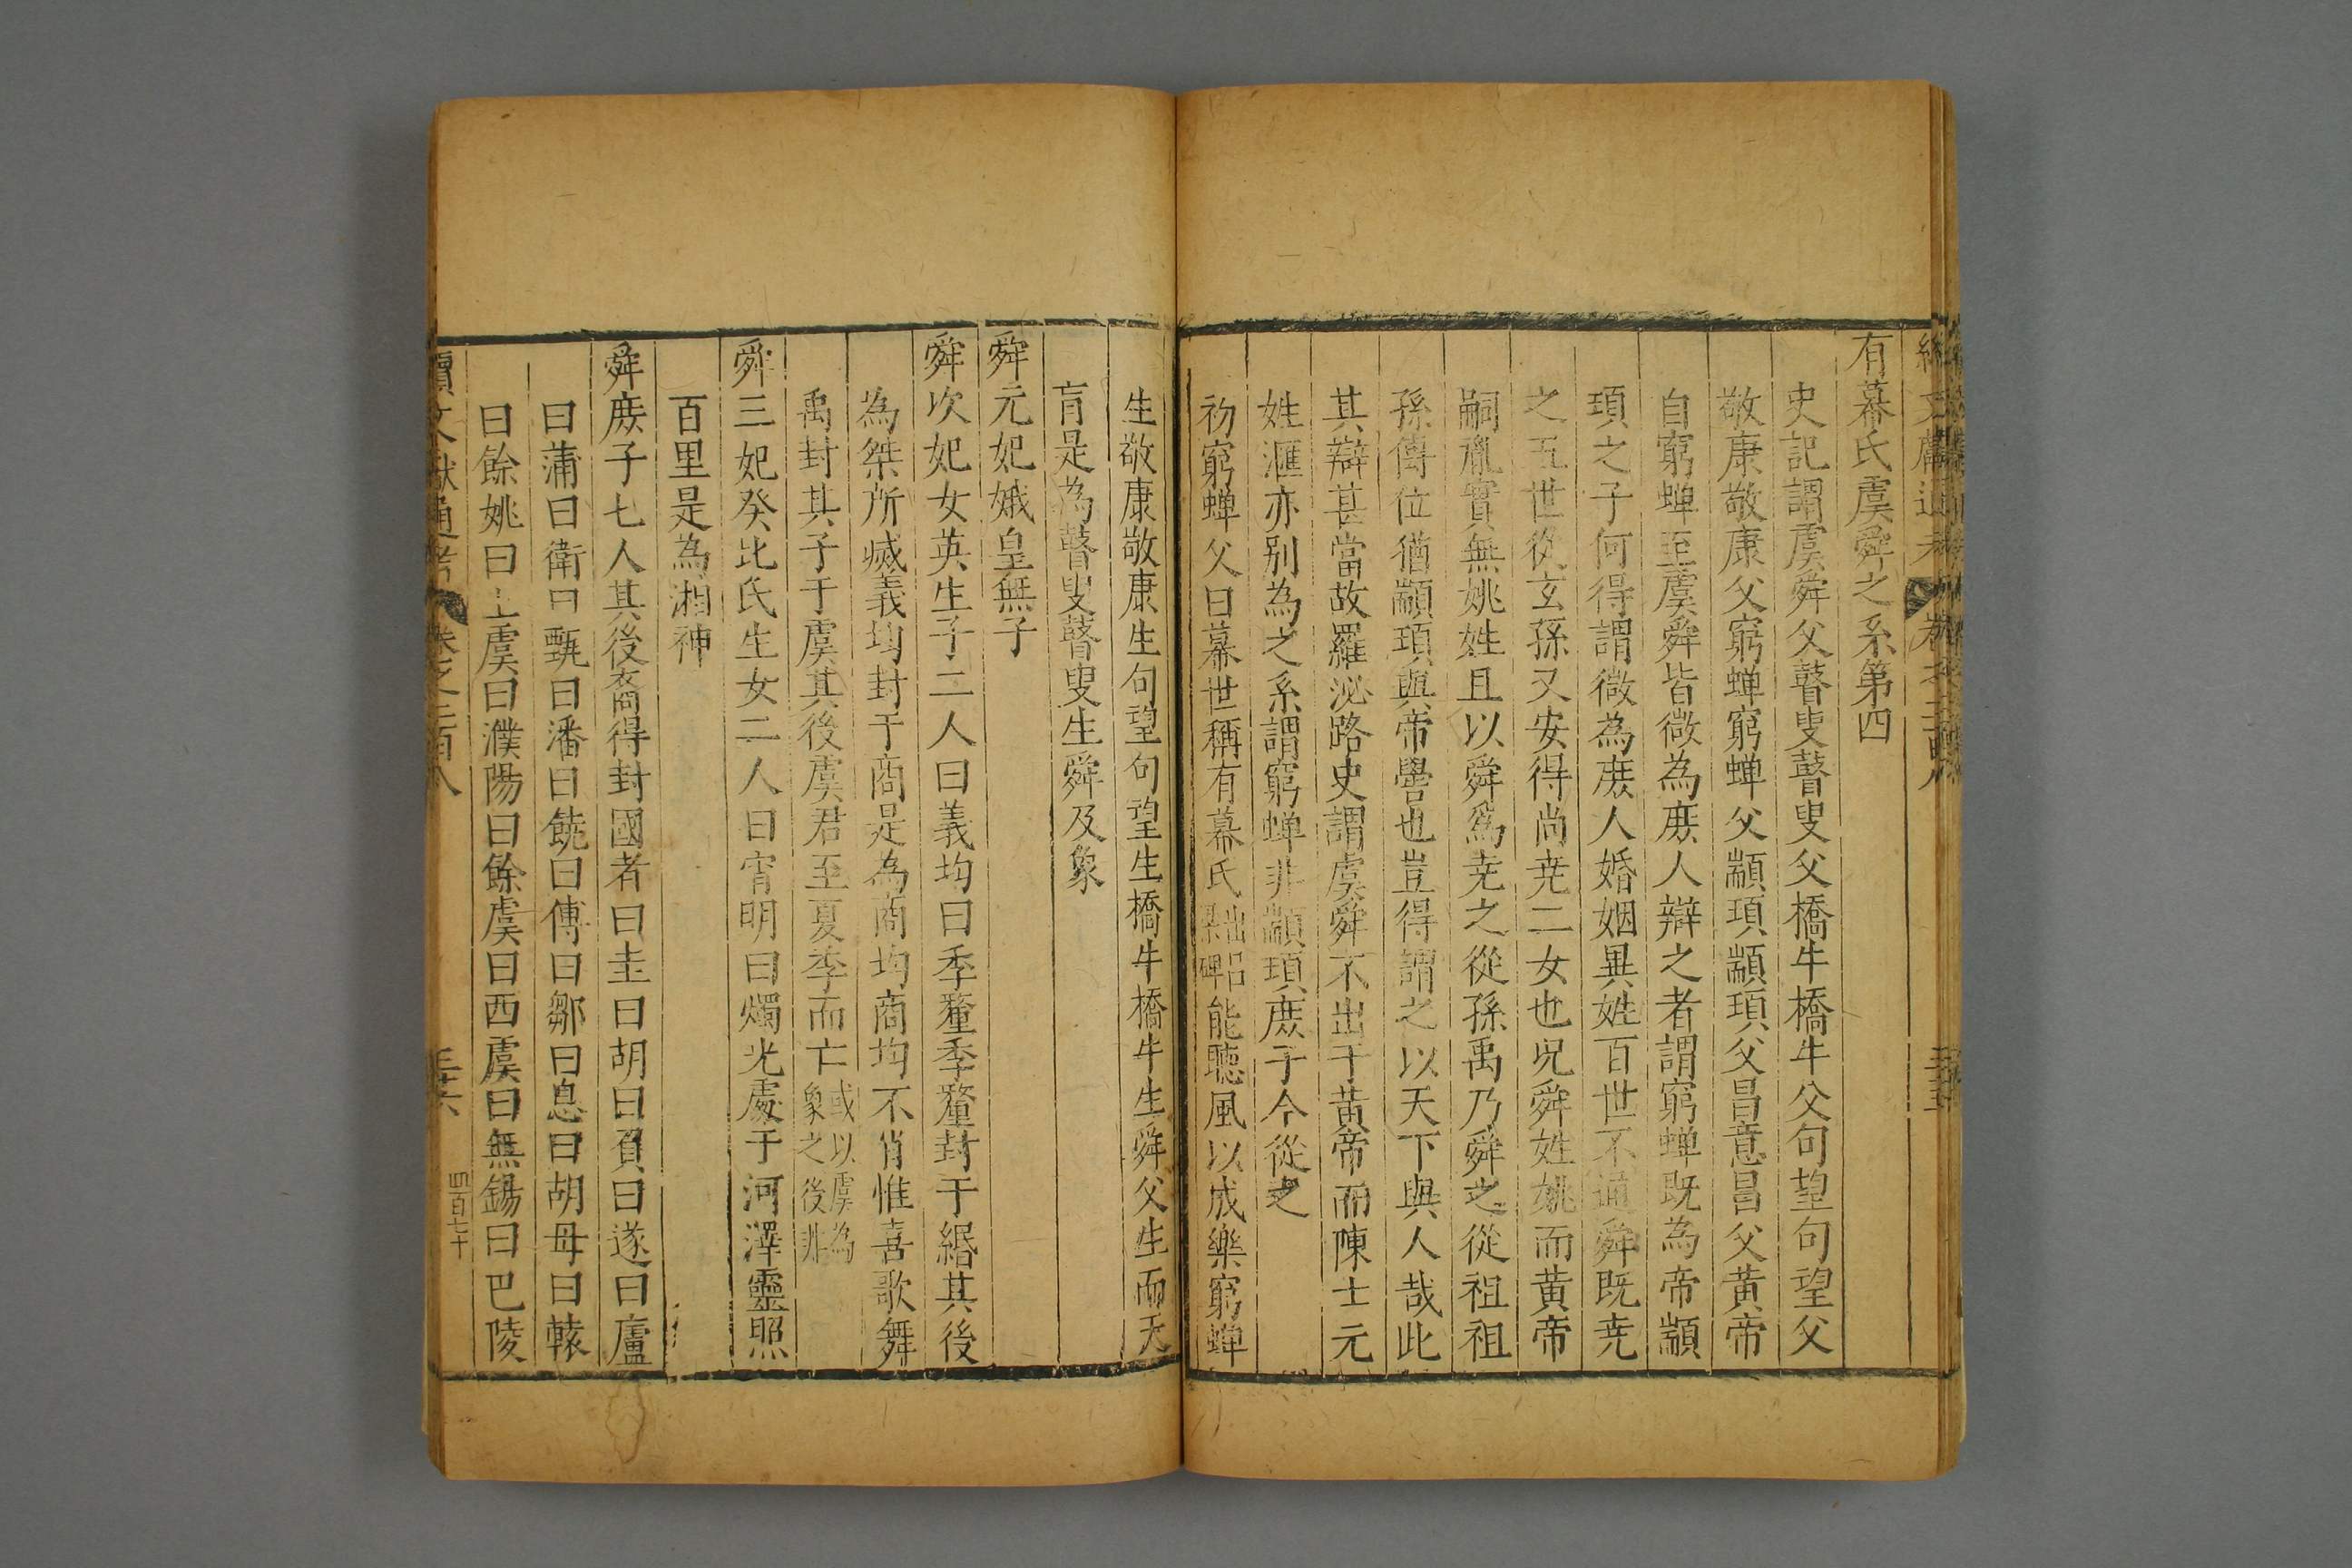 有幕氏虞舜之系第四
史記謂虞舜父瞽叟瞽叟父橋牛橋牛父句望句望父
敬康敬康父窮蝉窮蝉父顓頊顓頊父昌意昌意父黃帝
自窮蝉至虞舜皆微為庻人辯之者謂窮蝉既為帝顓
頊之子何得謂微為庻人婚姻異姓百世不通舜既尭
之五世從玄孫又安得尚尭二女也况舜姓姚而黃帝
嗣胤實無姚姓且以舜為尭之從孫禹乃舜之從祖祖
孫傳位猶顓頊與帝嚳也豈得謂之以天下與人哉此
其辯甚當故羅泌路史謂虞舜不出于黃帝而陳士元
姓滙亦别為之系謂窮蝉非顓頊庻子今從之
初窮蝉父曰幕世稱有幕氏
能聽風以成樂窮蝉
生敬康敬康生句望句望生橋牛橋牛生舜父生而天
肓是為瞽叟瞽叟生舜及象
舜元妃娥皇無子
舜次妃女英生子二人曰義均曰季釐季釐封于緡其後
為桀所㓕義均封于商是為商均商均不肖惟喜歌舞
禹封其子于虞其後虞君至夏季而亡或以虞為
象之後非
舜三妃癸比氏生女二人曰宵明曰燭光處于河澤靈照
百里是為湘神
舜庻子七人其後裔得封國者曰圭曰胡曰負曰遂曰廬
曰蒲曰衛曰甄曰潘曰饒曰傅曰鄒曰息曰胡母曰轅
曰餘姚曰上虞曰濮陽曰餘虞曰西虞曰無錫曰巴陵
續文獻通考
卷之二百八
三十六
四百七十